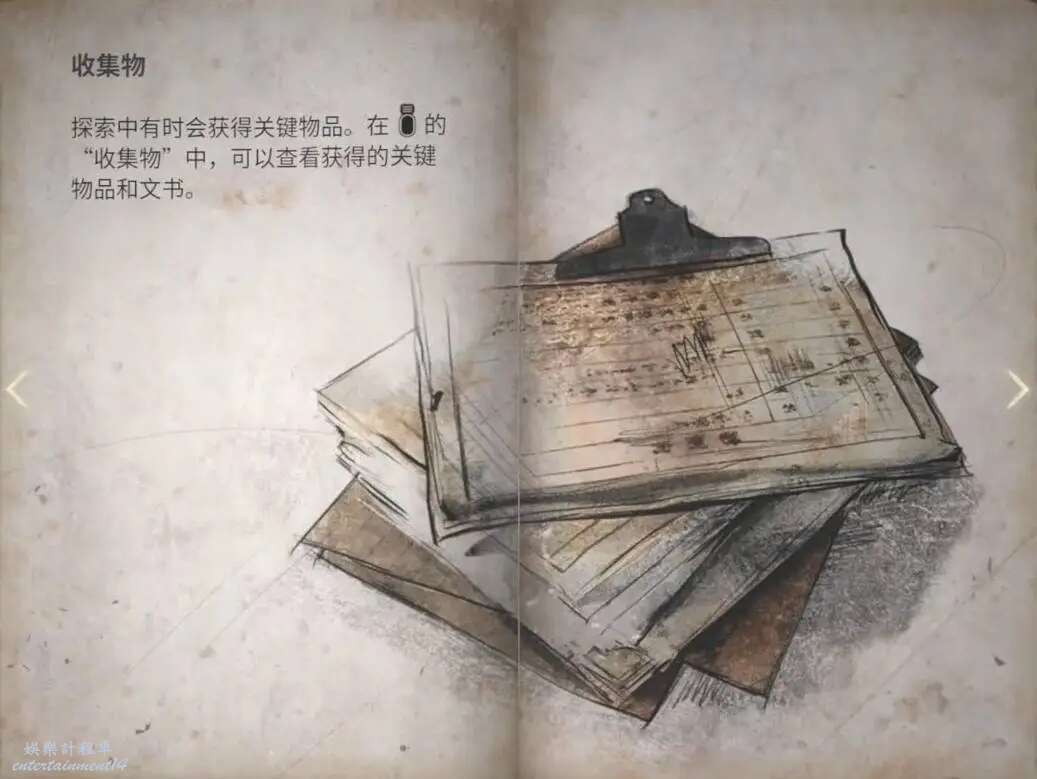 收集物
探索中有时会获得关键物品。在 的
“收集物”中，可以查看获得的关键
物品和文书。
娛樂計程車
entertainment14